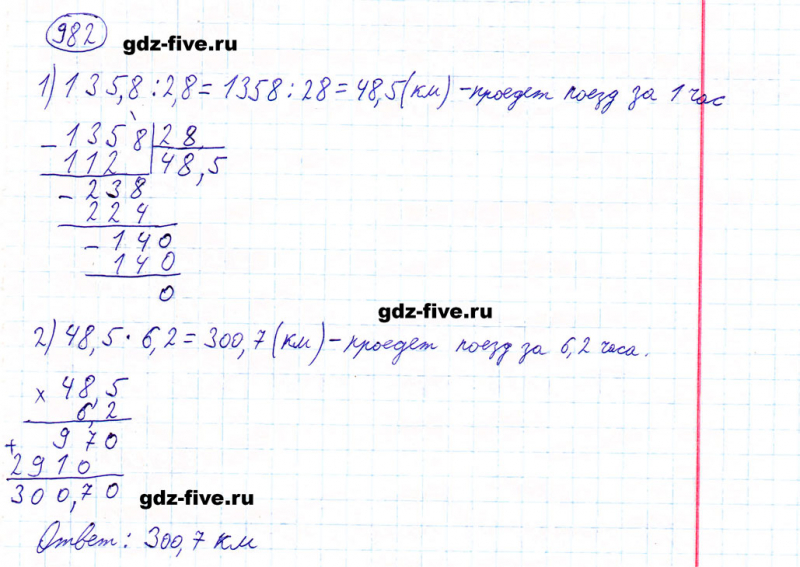 982
gdz-five.ru
1) 135,8 : 2,8 = 1358 : 28 = 48,5 (км) - проедет поезд за 1 час
- 1358 | 28
112 | 48,5
- 238
224
- 140
140
0
gdz-five.ru
2) 48,5 · 6,2 = 300,7 (км) - проедет поезд за 6,2 часа.
x 48,5
6,2
+ 970
2910
300,70
gdz-five.ru
Ответ: 300,7 км